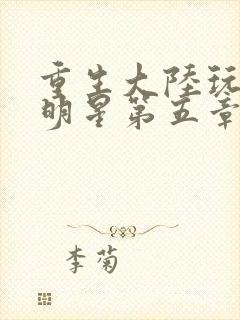 重生大陸玩
明星第五章
李菊